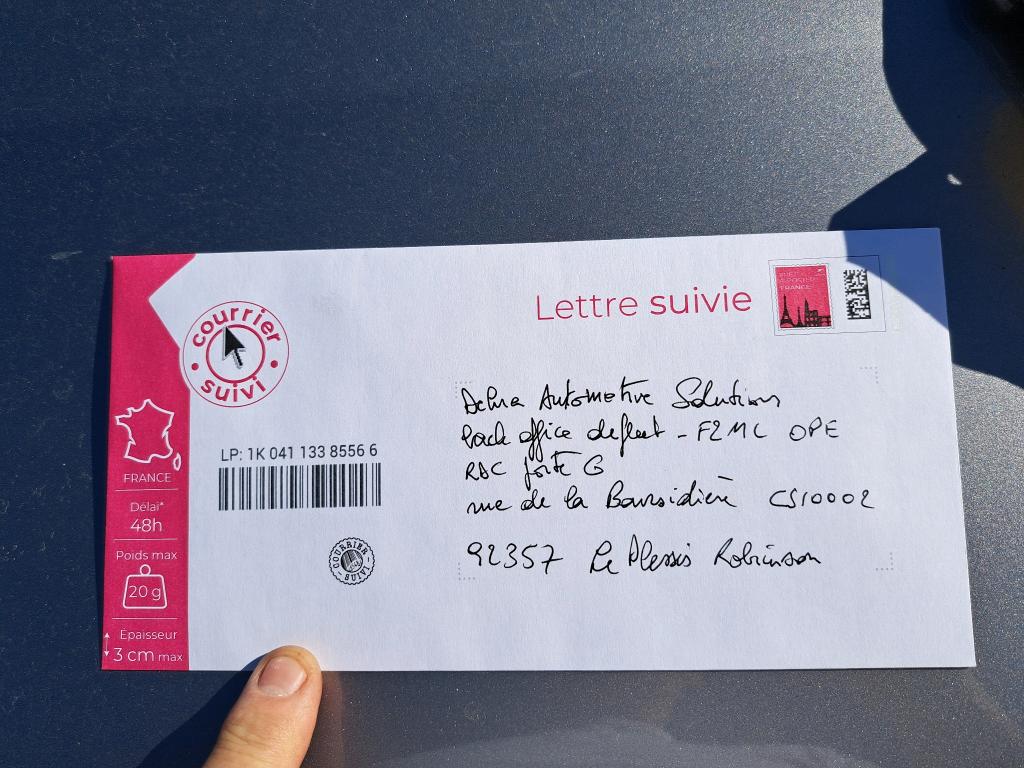 Lettre suivie
courrier suivi
LP: 1K 041 133 8556 6
FRANCE
Délai*
48h
Poids max
20 g
Épaisseur
3 cm max
COURRIER SUIVI
FRANCE
Automotive Solutions
back office - F2MC OPE
RDC porte G
rue de la Boursidière CS10002
92357 Le Plessis Robinson